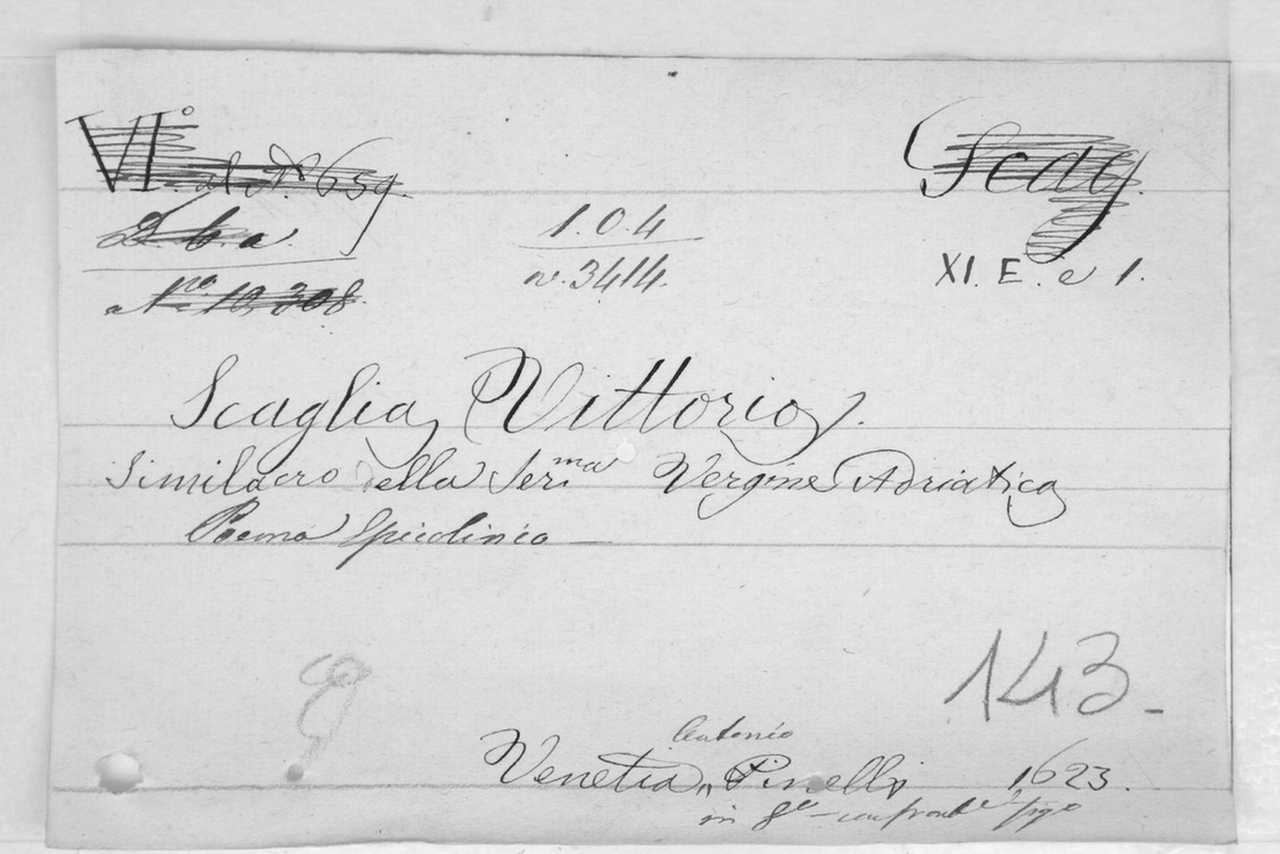 VI.° al N.° 659. Scag.
D. b. a.
N.ro 10,308.
1.0.4
n. 3414.
XI. E. e 1.
Scaglia Vittorio.
Similacro della Ser.ma Vergine Adriatica
Poema
143-
Antonio
Venetia, Pinelli 1623.
in 8.°